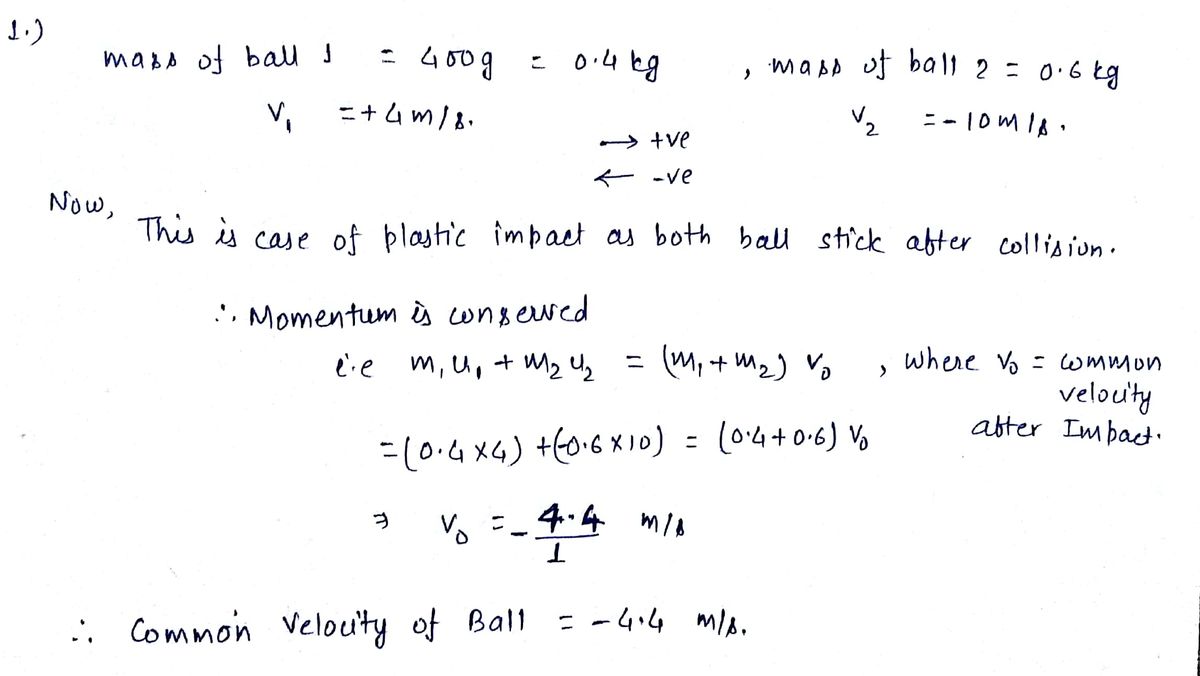 1.)
mass of ball 1 = 400g = 0.4 kg , mass of ball 2 = 0.6 kg
V₁ = +4 m/s. V₂ = -10 m/s.
→ +ve
← -ve
Now,
This is case of plastic impact as both ball stick after collision.
∴ Momentum is conserved
i.e m₁u₁ + m₂u₂ = (m₁+m₂) V₀ , where V₀ = common
velocity
after Impact.
=(0.4×4) +(-0.6×10) = (0.4+0.6) V₀
⇒ V₀ = -4.4/1 m/s
∴ Common Velocity of Ball = -4.4 m/s.